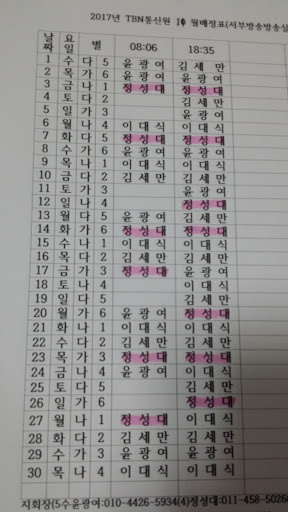 2017년 TBN통신원 월배정표(서부방송방송실
날짜 요일 별 08:06 18:35
1 수 다 5 윤 광 여 김 세 만
2 목 가 6 윤 광 여 윤 광 여
3 금 나 1 정 성 대 정 성 대
4 토 다 2 김 세 만
5 일 가 3 윤 광 여
6 월 나 4 이 대 식 이 대 식
7 화 다 5 정 성 대 정 성 대
8 수 가 6 윤 광 여 윤 광 여
9 목 나 1 이 대 식 이 대 식
10 금 다 2 김 세 만 김 세 만
11 토 가 3 윤 광 여
12 일 나 4 정 성 대
13 월 다 5 윤 광 여 김 세 만
14 화 가 6 정 성 대 정 성 대
15 수 나 1 이 대 식 이 대 식
16 목 다 2 김 세 만 김 세 만
17 금 가 3 정 성 대 윤 광 여
18 토 나 4 이 대 식
19 일 다 5 김 세 만
20 월 가 6 윤 광 여 정 성 대
21 화 나 1 이 대 식 이 대 식
22 수 다 2 김 세 만 김 세 만
23 목 가 3 정 성 대 정 성 대
24 금 나 4 윤 광 여 이 대 식
25 토 다 5 김 세 만
26 일 가 6 정 성 대
27 월 나 1 정 성 대 이 대 식
28 화 다 2 김 세 만 김 세 만
29 수 가 3 윤 광 여 윤 광 여
30 목 나 4 이 대 식 이 대 식
지회장(5수윤광여:010-4426-5934(4)정성대:011-458-5026